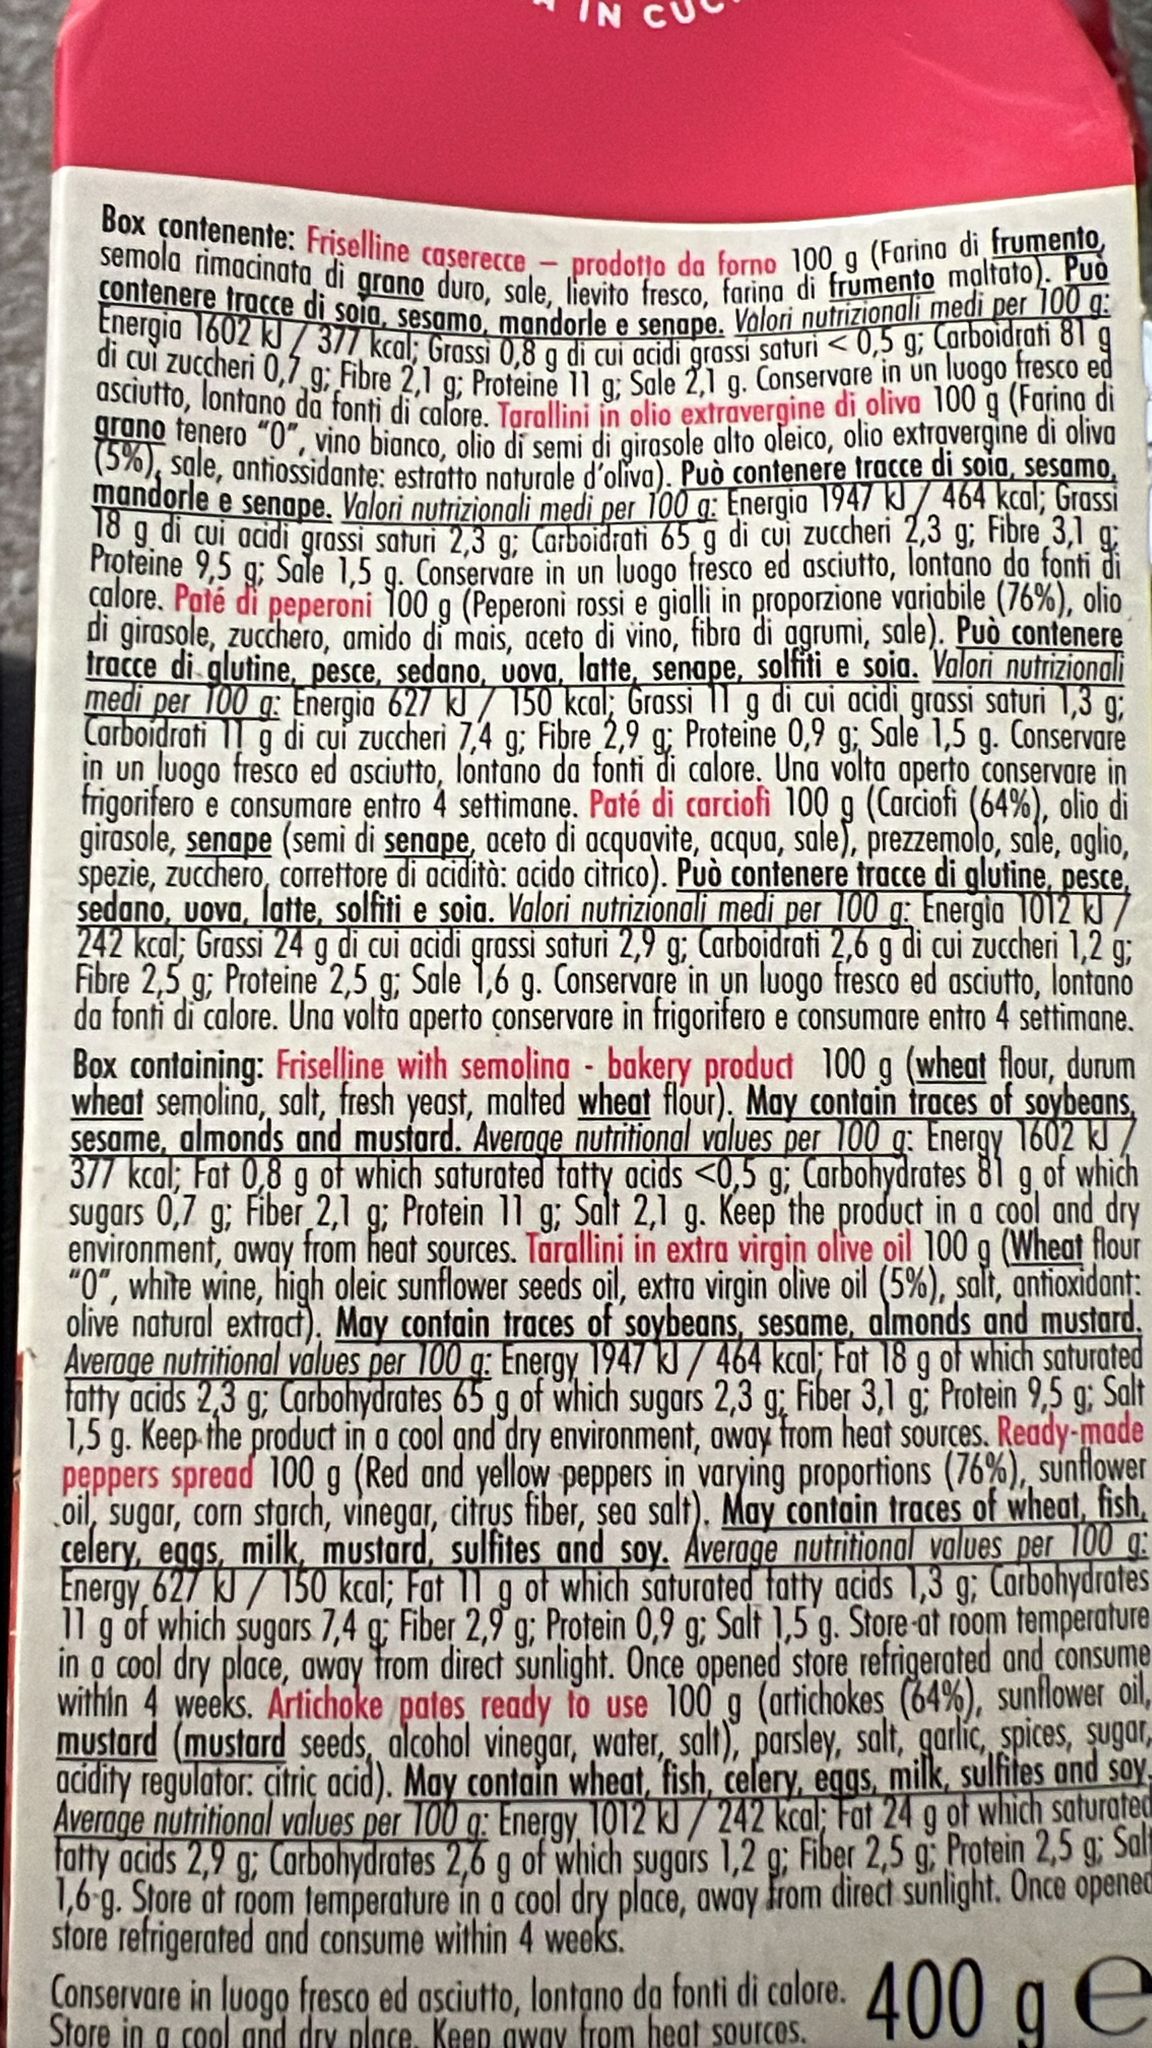 IN CUC
Box contenente: Friselline caserecce – prodotto da forno 100 g (Farina di frumento,
semola rimacinata di grano duro, sale, lievito fresco, farina di frumento maltato). Può
contenere tracce di soia, sesamo, mandorle e senape. Valori nutrizionali medi per 100 g:
Energia 1602 kJ / 377 kcal; Grassi 0,8 g di cui acidi grassi saturi < 0,5 g; Carboidrati 81 g
di cui zuccheri 0,7 g; Fibre 2,1 g; Proteine 11 g; Sale 2,1 g. Conservare in un luogo fresco ed
asciutto, lontano da fonti di calore. Tarallini in olio extravergine di oliva 100 g (Farina di
grano tenero “0”, vino bianco, olio di semi di girasole alto oleico, olio extravergine di oliva
(5%), sale, antiossidante: estratto naturale d’oliva). Può contenere tracce di soia, sesamo,
mandorle e senape. Valori nutrizionali medi per 100 g: Energia 1947 kJ / 464 kcal; Grassi
18 g di cui acidi grassi saturi 2,3 g; Carboidrati 65 g di cui zuccheri 2,3 g; Fibre 3,1 g;
Proteine 9,5 g; Sale 1,5 g. Conservare in un luogo fresco ed asciutto, lontano da fonti di
calore. Paté di peperoni 100 g (Peperoni rossi e gialli in proporzione variabile (76%), olio
di girasole, zucchero, amido di mais, aceto di vino, fibra di agrumi, sale). Può contenere
tracce di glutine, pesce, sedano, uova, latte, senape, solfiti e soia. Valori nutrizionali
medi per 100 g: Energia 627 kJ / 150 kcal; Grassi 11 g di cui acidi grassi saturi 1,3 g;
Carboidrati 11 g di cui zuccheri 7,4 g; Fibre 2,9 g; Proteine 0,9 g; Sale 1,5 g. Conservare
in un luogo fresco ed asciutto, lontano da fonti di calore. Una volta aperto conservare in
frigorifero e consumare entro 4 settimane. Paté di carciofi 100 g (Carciofi (64%), olio di
girasole, senape (semi di senape, aceto di acquavite, acqua, sale), prezzemolo, sale, aglio,
spezie, zucchero, correttore di acidità: acido citrico). Può contenere tracce di glutine, pesce,
sedano, uova, latte, solfiti e soia. Valori nutrizionali medi per 100 g: Energia 1012 kJ /
242 kcal; Grassi 24 g di cui acidi grassi saturi 2,9 g; Carboidrati 2,6 g di cui zuccheri 1,2 g;
Fibre 2,5 g; Proteine 2,5 g; Sale 1,6 g. Conservare in un luogo fresco ed asciutto, lontano
da fonti di calore. Una volta aperto conservare in frigorifero e consumare entro 4 settimane.
Box containing: Friselline with semolina - bakery product 100 g (wheat flour, durum
wheat semolina, salt, fresh yeast, malted wheat flour). May contain traces of soybeans,
sesame, almonds and mustard. Average nutritional values per 100 g: Energy 1602 kJ /
377 kcal; Fat 0,8 g of which saturated fatty acids <0,5 g; Carbohydrates 81 g of which
sugars 0,7 g; Fiber 2,1 g; Protein 11 g; Salt 2,1 g. Keep the product in a cool and dry
environment, away from heat sources. Tarallini in extra virgin olive oil 100 g (Wheat flour
“0”, white wine, high oleic sunflower seeds oil, extra virgin olive oil (5%), salt, antioxidant:
olive natural extract). May contain traces of soybeans, sesame, almonds and mustard.
Average nutritional values per 100 g: Energy 1947 kJ / 464 kcal; Fat 18 g of which saturated
fatty acids 2,3 g; Carbohydrates 65 g of which sugars 2,3 g; Fiber 3,1 g; Protein 9,5 g; Salt
1,5 g. Keep the product in a cool and dry environment, away from heat sources. Ready-made
peppers spread 100 g (Red and yellow peppers in varying proportions (76%), sunflower
oil, sugar, corn starch, vinegar, citrus fiber, sea salt). May contain traces of wheat, fish,
celery, eggs, milk, mustard, sulfites and soy. Average nutritional values per 100 g:
Energy 627 kJ / 150 kcal; Fat 11 g of which saturated fatty acids 1,3 g; Carbohydrates
11 g of which sugars 7,4 g; Fiber 2,9 g; Protein 0,9 g; Salt 1,5 g. Store at room temperature
in a cool dry place, away from direct sunlight. Once opened store refrigerated and consume
within 4 weeks. Artichoke pates ready to use 100 g (artichokes (64%), sunflower oil,
mustard (mustard seeds, alcohol vinegar, water, salt), parsley, salt, garlic, spices, sugar,
acidity regulator: citric acid). May contain wheat, fish, celery, eggs, milk, sulfites and soy.
Average nutritional values per 100 g: Energy 1012 kJ / 242 kcal; Fat 24 g of which saturated
fatty acids 2,9 g; Carbohydrates 2,6 g of which sugars 1,2 g; Fiber 2,5 g; Protein 2,5 g; Salt
1,6 g. Store at room temperature in a cool dry place, away from direct sunlight. Once opened
store refrigerated and consume within 4 weeks.
Conservare in luogo fresco ed asciutto, lontano da fonti di calore.
Store in a cool and dry place. Keep away from heat sources.
400 g e